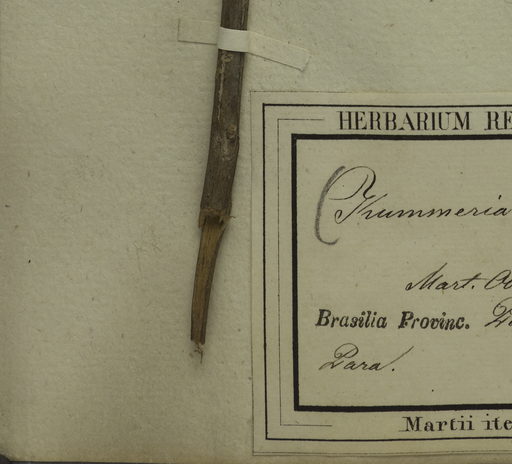 HERBARIUM RE
Krummeria
Mart. 
Brasilia Provinc.
Para.
Martii ite